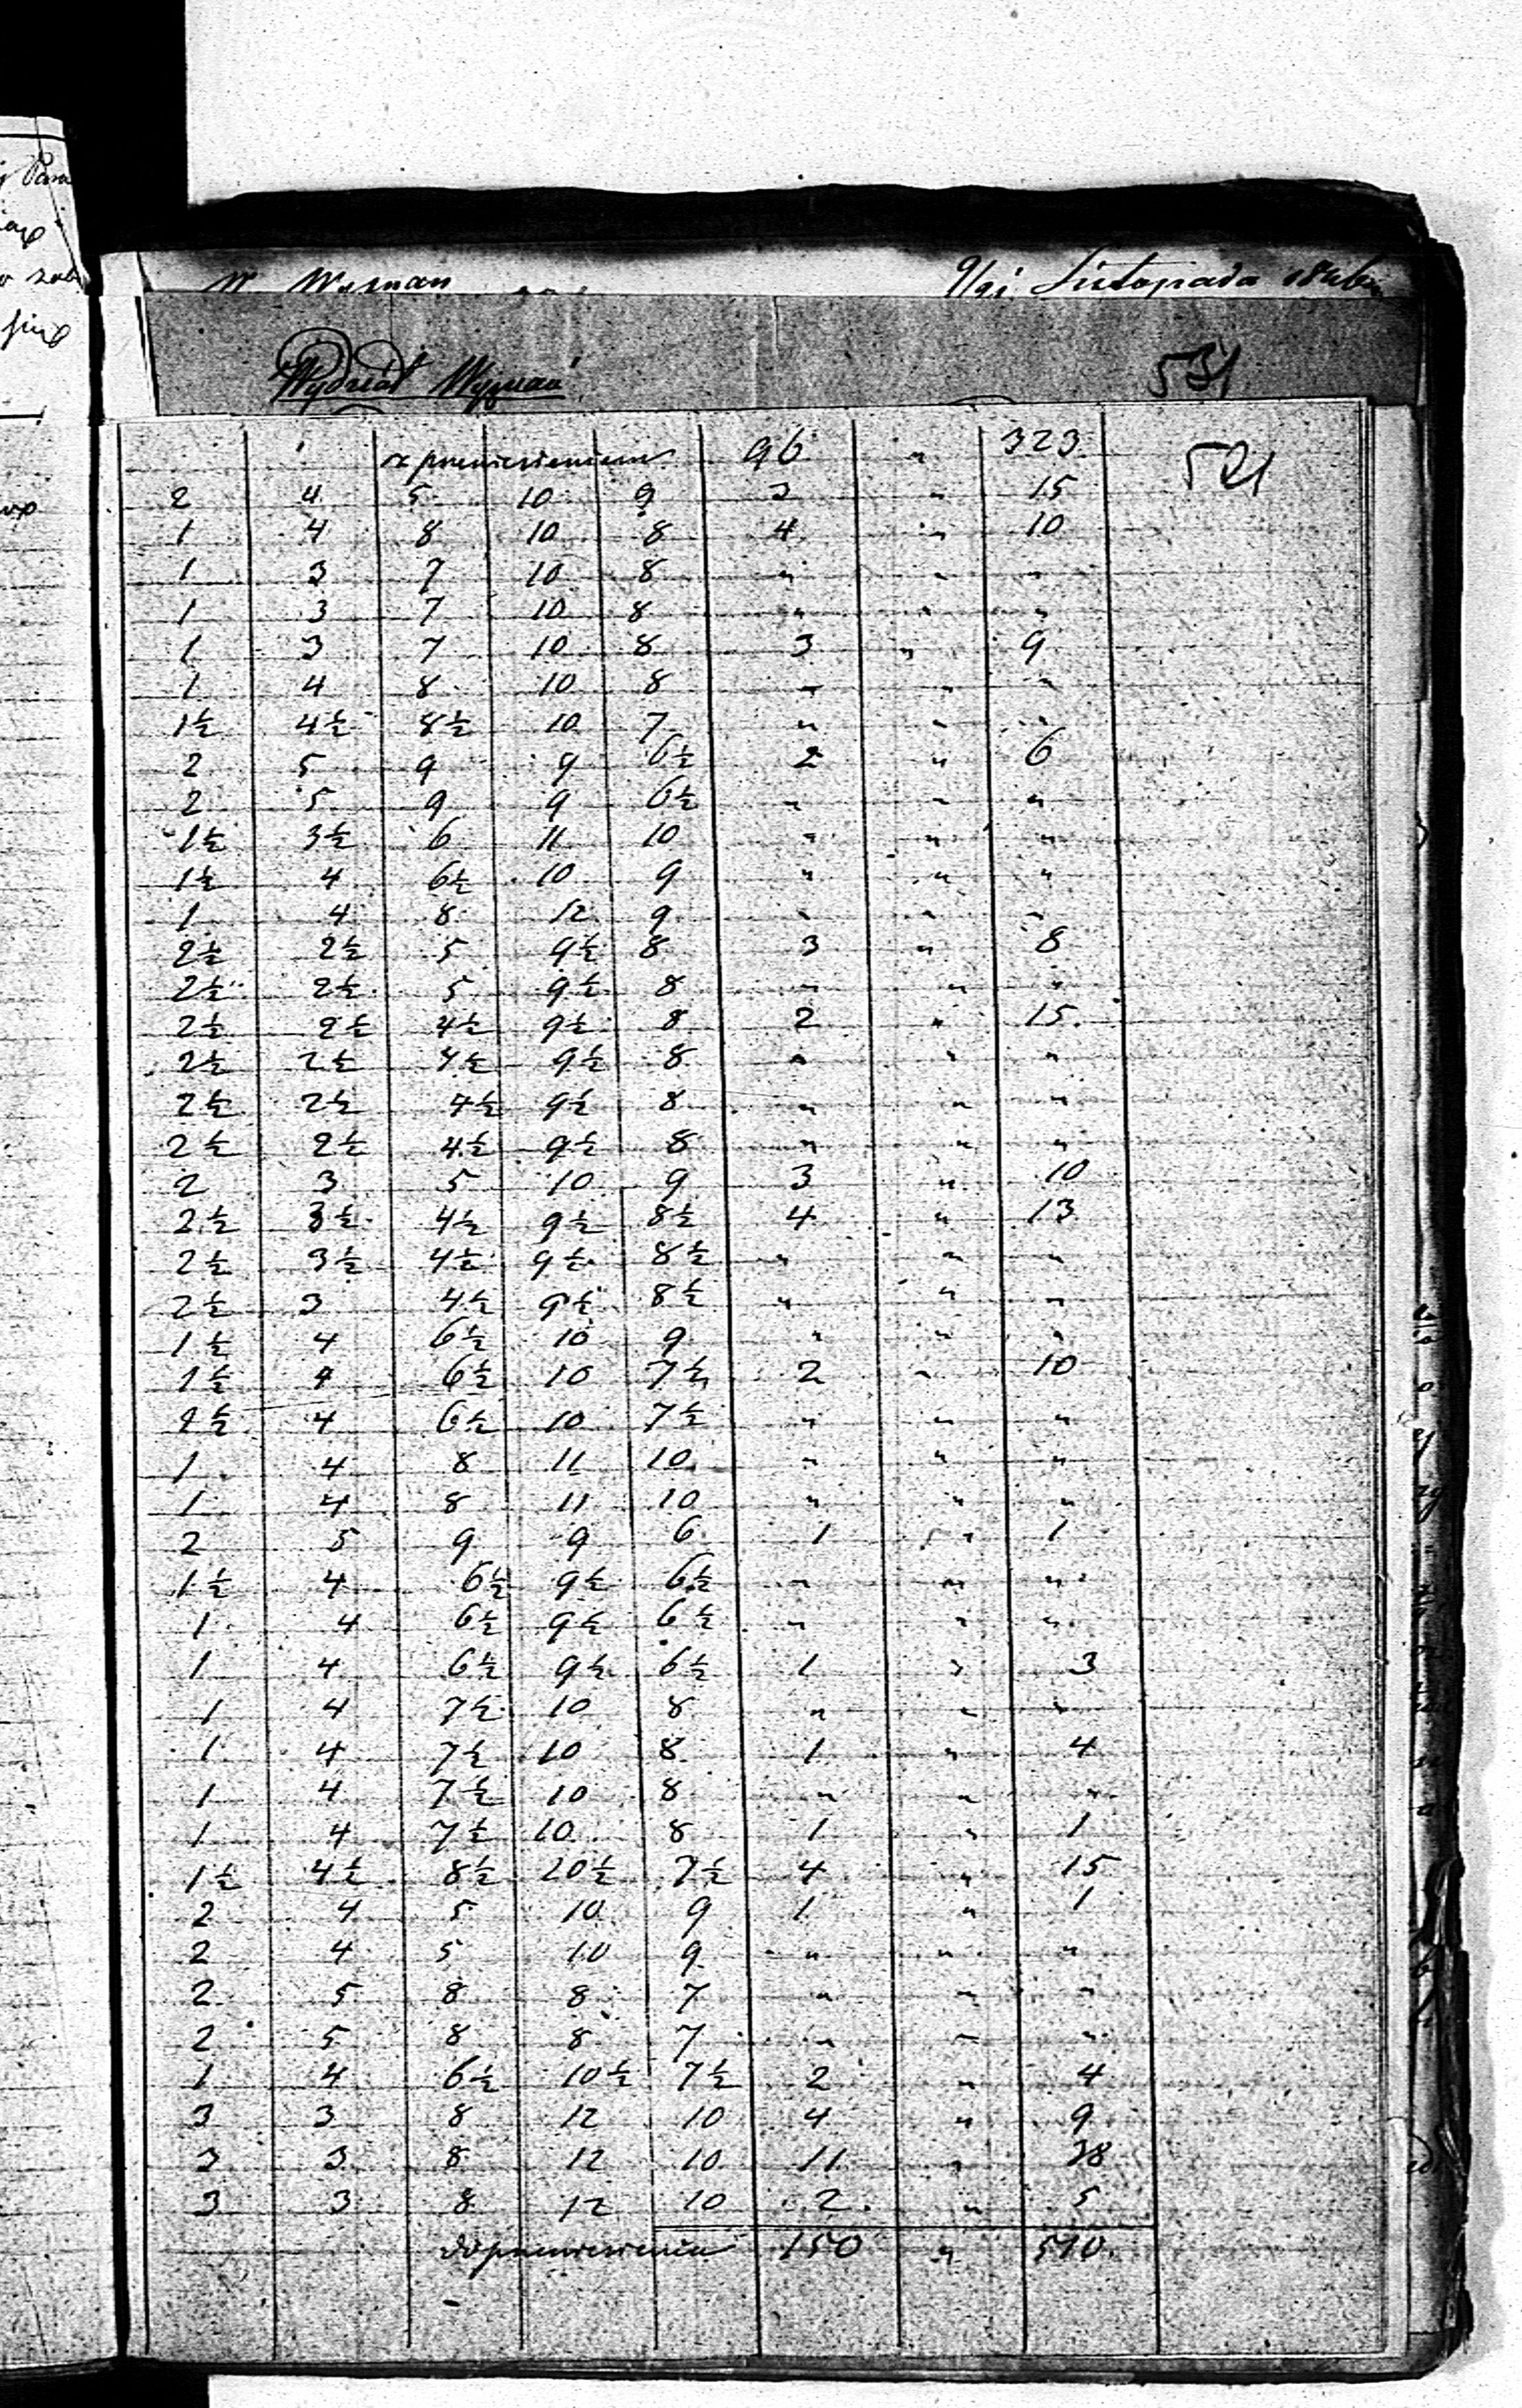 9/21 Listopada
Wydział Wyznań
531
z przeniesienia 96 " 323
521
2 4 5 10 9 3 " 15
1 4 8 10 8 4 " 10
1 3 7 10 8 " " "
1 3 7 10 8 " " "
1 3 7 10 8 3 " 9
1 4 8 10 8 " " "
1½ 4½ 8½ 10 7 " " "
2 5 9 9 6½ 2 " 6
2 5 9 9 6½ " " "
1½ 3½ 6 11 10 " " "
1½ 4 6½ 10 9 " " "
1 4 8 12 9 " " "
2½ 2½ 5 9½ 8 3 " 8
2½ 2½ 5 9½ 8 " " "
2½ 2½ 4½ 9½ 8 2 " 15
2½ 2½ 4½ 9½ 8 " " "
2½ 2½ 4½ 9½ 8 " " "
2½ 2½ 4½ 9½ 8 " " "
2 3 5 10 9 3 " 10
2½ 3½ 4½ 9½ 8½ 4 " 13
2½ 3½ 4½ 9½ 8½ " " "
2½ 3 4½ 9½ 8½ " " "
1½ 4 6½ 10 9 " " "
1½ 4 6½ 10 7½ 2 " 10
2½ 4 6½ 10 7½ " " "
1 4 8 11 10 " " "
1 4 8 11 10 " " "
2 5 9 9 6 1 " 1
1½ 4 6½ 9½ 6½ " " "
1 4 6½ 9½ 6½ " " "
1 4 6½ 9½ 6½ 1 " 3
1 4 7½ 10 8 " " "
1 4 7½ 10 8 1 " 4
1 4 7½ 10 8 " " "
1 4 7½ 10 8 1 " 1
1½ 4½ 8½ 10½ 7½ 4 " 15
2 4 5 10 9 1 " 1
2 4 5 10 9 " " "
2 5 8 8 7 " " "
2 5 8 8 7 " " "
1 4 6½ 10½ 7½ 2 " 4
3 3 8 12 10 4 " 9
3 3 8 12 10 11 " 38
3 3 8 12 10 2 " 5
do przeniesienia 150 " 510